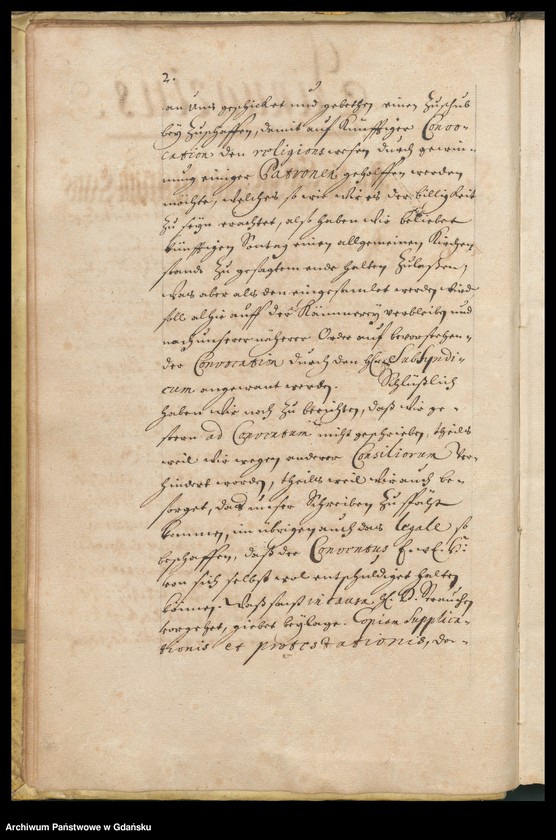 2.
an Uns geschicket und gebethen einen Zuschub
bey zuschaffen, damit auf künfftiger Convo-
cation den religions wesen durch gewin-
nung einiger Patronen geholffen werden
möchte, welches so wie wir es der billigkeit
zu seÿn erachtet, also haben wir beliebet
künfftigen Sontag einen allgemeinen Kirchen
stand zu gesagtem ende halten zulaßen,
was aber als den eingesamlet werden wird
soll alhie auff der Kämmereÿ verbleiben und
nach unserer näherer Ordre auf bevorstehen-
der Convocation durch den Hn Subsyndi-
cum angewant werden. Schlüßlich
haben wir noch zu berichten, daß wir ge-
stern ad Conventum nicht geschrieben, theils
weil wir wegen anderer Consiliorum ver-
hindert worden, theils weil wir auch be-
sorget, daß unser Schreiben zu späht
kommen, im übrigen auch das legale so
beschaffen, daß der Conventus E. w. E. H.
von sich selbst wol entschuldiget halten
können. Waß sonst in causa H. D. Strauchen
vorgehet, giebet beÿlage. Copien Supplica-
tionis et protestationis, do-
Archiwum Państwowe w Gdańsku